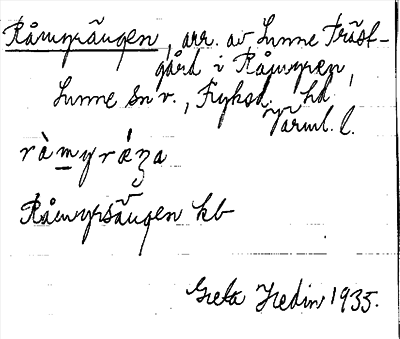 Råmyrängen, arr. av Lunne Präst-
gård i Råmyren,
Sunne sn v., Fryksd. hd
Värml. l.
rà m y r æŋa
Råmyrsängen kb
Greta Hedin 1935.